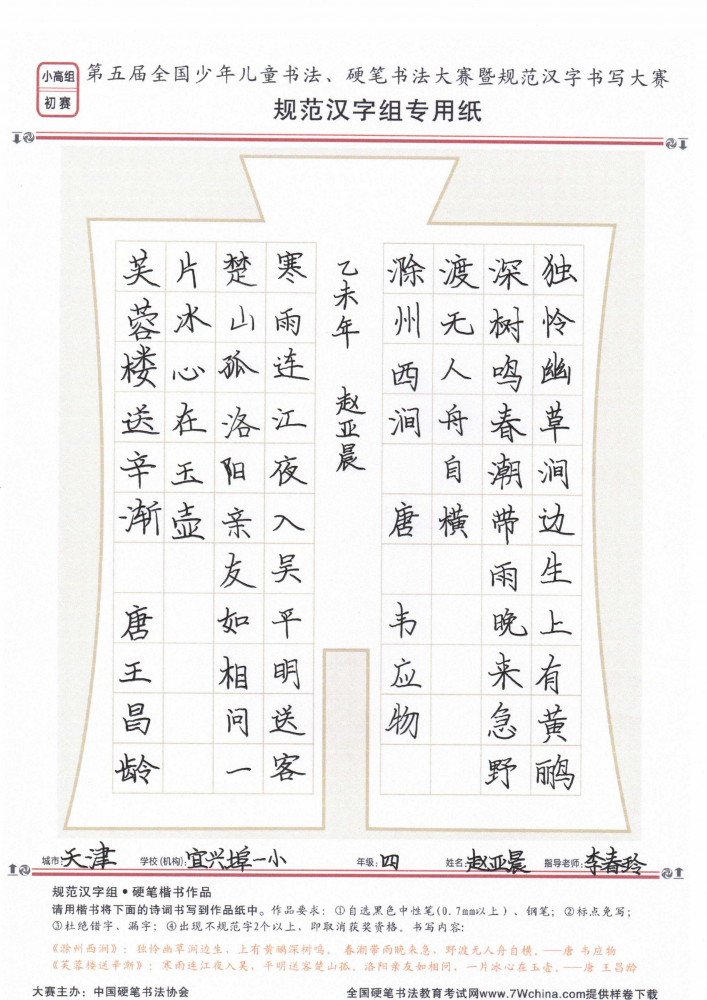 小高组
初赛
第五届全国少年儿童书法、硬笔书法大赛暨规范汉字书写大赛
规范汉字组专用纸
独怜幽草涧边生上有黄鹂
深树鸣春潮带雨晚来急野
渡无人舟自横
滁州西涧 唐 韦应物
乙未年 赵亚晨
寒雨连江夜入吴平明送客
楚山孤洛阳亲友如相问一
片冰心在玉壶
芙蓉楼送辛渐 唐王昌龄
城市:天津 学校(机构):宜兴埠一小 年级:四 姓名:赵亚晨 指导老师:李春玲
规范汉字组•硬笔楷书作品
请用楷书将下面的诗词书写到作品纸中。作品要求：①自选黑色中性笔(0.7mm以上)、钢笔；②标点免写；
③杜绝错字、漏字；④出现不规范字2个以上，即取消获奖资格。书写内容：
《滁州西涧》：独怜幽草涧边生，上有黄鹂深树鸣。 春潮带雨晚来急，野渡无人舟自横。——唐 韦应物
《芙蓉楼送辛渐》：寒雨连江夜入吴，平明送客楚山孤。洛阳亲友如相问，一片冰心在玉壶。——唐 王昌龄
大赛主办：中国硬笔书法协会 全国硬笔书法教育考试网www.7Wchina.com提供样卷下载